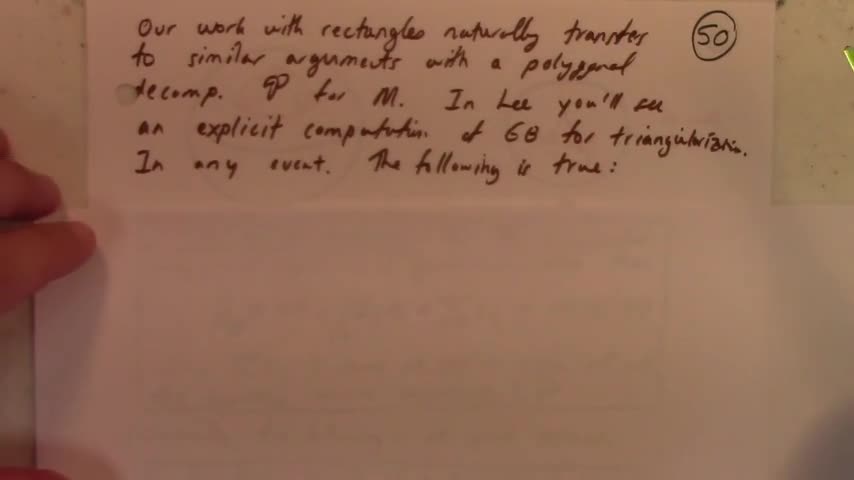 Our work with rectangles naturally transfer
to similar arguments with a polygonal
decomp. P for M. In Lee you'll see
an explicit computation of GB for triangularization.
In any event. The following is true:
50